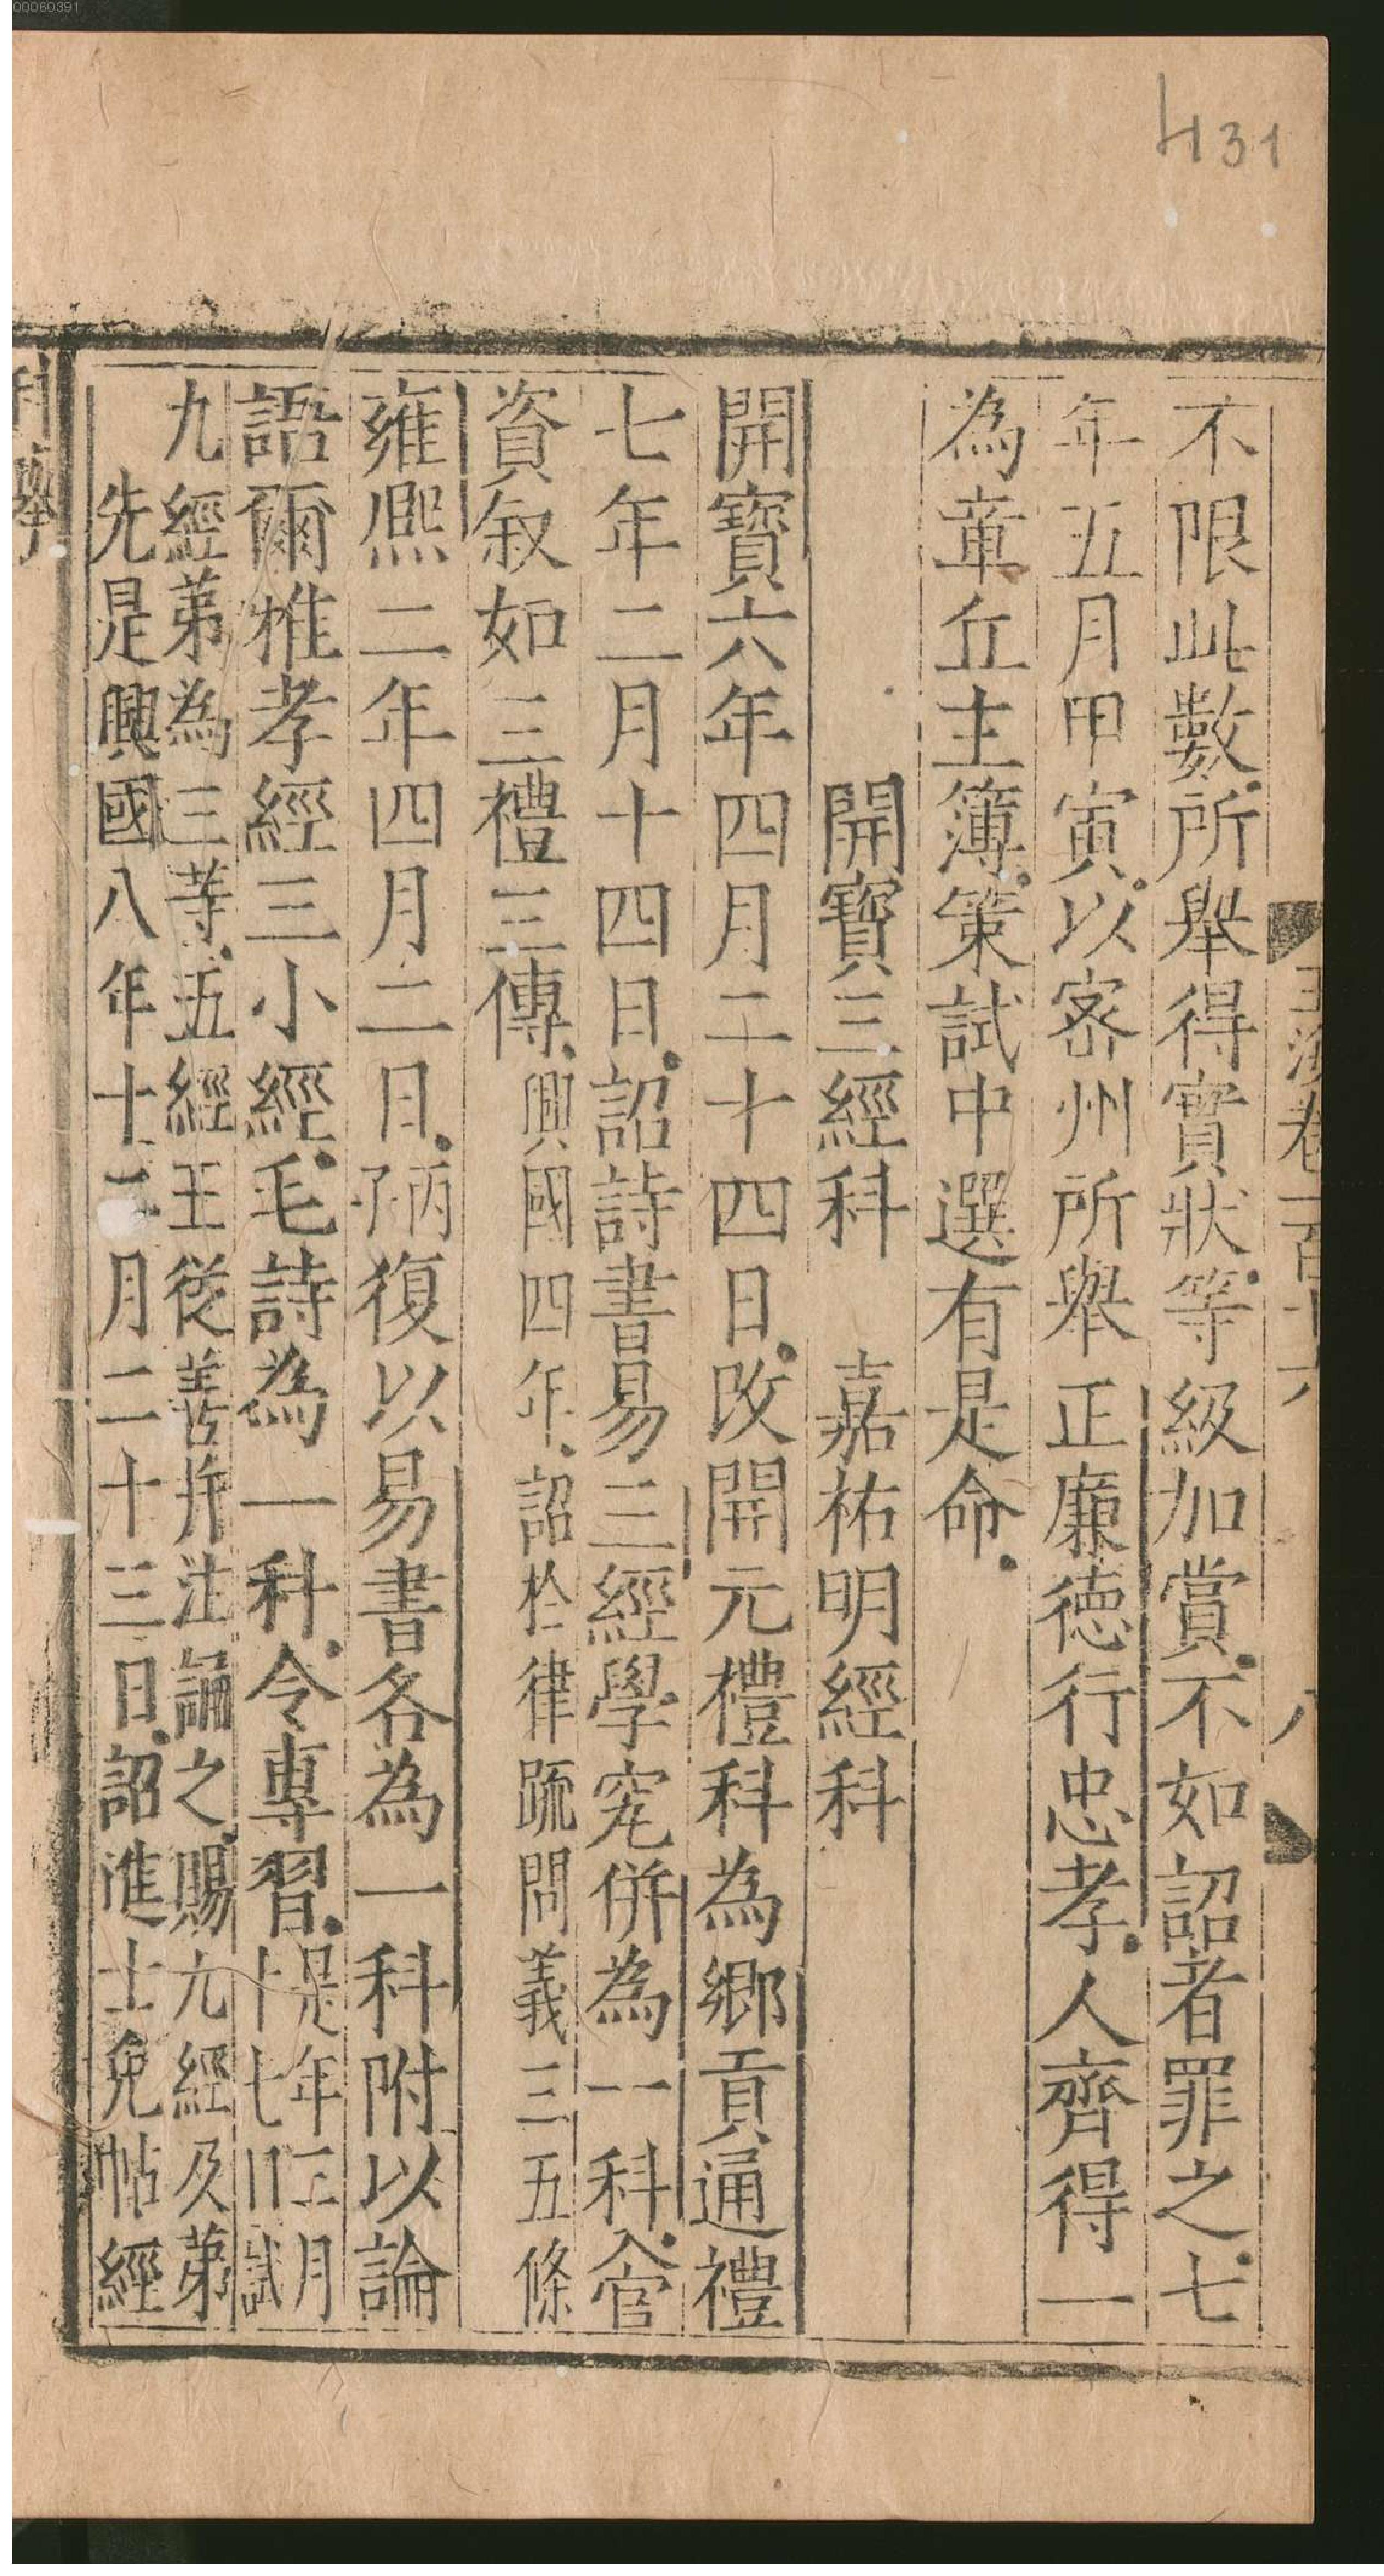 00060391
431
玉海卷一百十六 八
不限此數所舉得實狀等級加賞不如詔者罪之七
年五月甲寅以密州所舉正廉德行忠孝人齊得一
為章丘主簿策試中選有是命
開寶三經科 嘉祐明經科
開寶六年四月二十四日改開元禮科為鄉貢通禮
七年二月十四日詔詩書易三經學究併為一科入官
資叙如三禮三傳興國四年詔於律疏問義三五條
雍熙二年四月二日丙子復以易書各為一科附以論
語爾雅孝經三小經毛詩為一科令專習是年三月
十七日試
九經第為三等五經王從善并注誦之賜九經及第
先是興國八年十二月二十三日詔進士免帖經
科舉